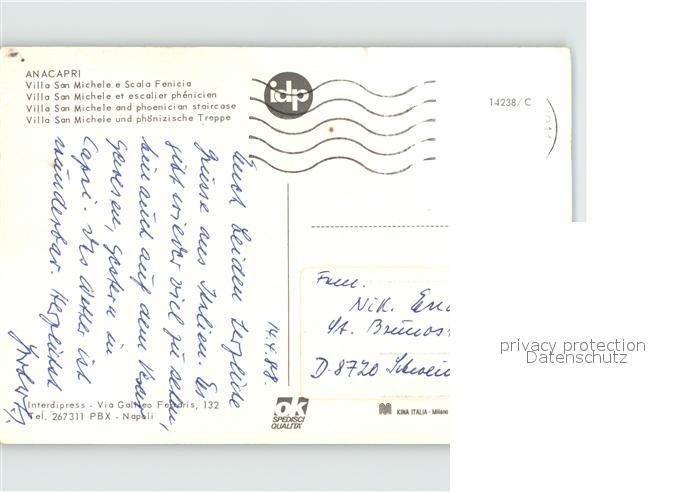 ANACAPRI
Villa San Michele e Scala Fenicia
Villa San Michele et escalier phénicien
Villa San Michele and phoenician staircase
Villa San Michele und phönizische Treppe
idp
14238/C
14.4.88.
Euch beiden herzliche
Grüsse aus Italien. Es
gibt wieder viel zu sehen,
bin auch auf dem Vesuv
gewesen, gestern in
Capri. Das Wetter ist
wunderbar. Herzlichst
Fam.
Nik.
St. Brunos
D-8720 Schwein
privacy protection
Datenschutz
Interdipress - Via Galileo Ferraris, 132
Tel. 267311 PBX - Napoli
ok
SPEDISCI
QUALITA'
KINA ITALIA - Milano